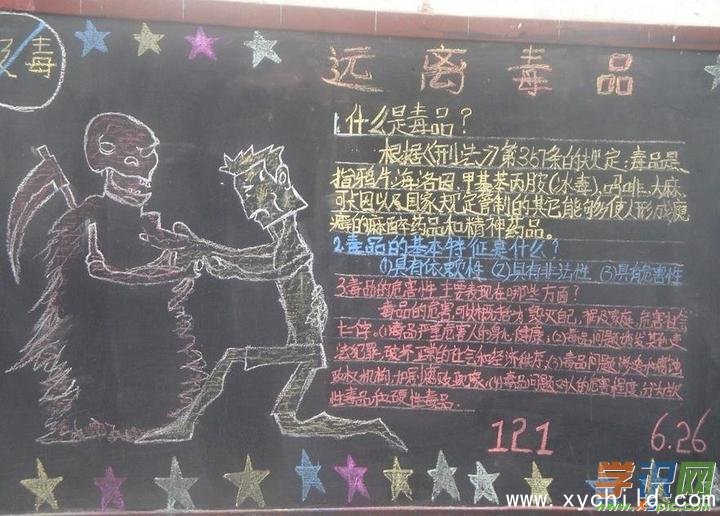 毒
远离毒品
1.什么是毒品?
根据《刑法》第357条的规定:毒品是
指鸦片、海洛因、甲基苯丙胺(冰毒)、吗啡、大麻、
可卡因以及国家规定管制的其它能够使人形成瘾
癖的麻醉药品和精神药品。
2.毒品的基本特征是什么?
(1)具有依赖性 (2)具有非法性 (3)具有危害性
3.毒品的危害性主要表现在哪些方面?
毒品的危害可以概括为"毁灭自己,祸及家庭,危害社会"
七个字。(1)毒品严重危害人的身心健康;(2)毒品问题诱发其他违
法犯罪,破坏正常的社会和经济秩序;(3)毒品问题渗透和腐蚀
政权机构,加剧腐败现象。(4)毒品问题对人的危害程度,分为软
性毒品和硬性毒品.
121 6.26
学识网
www.xychild.com